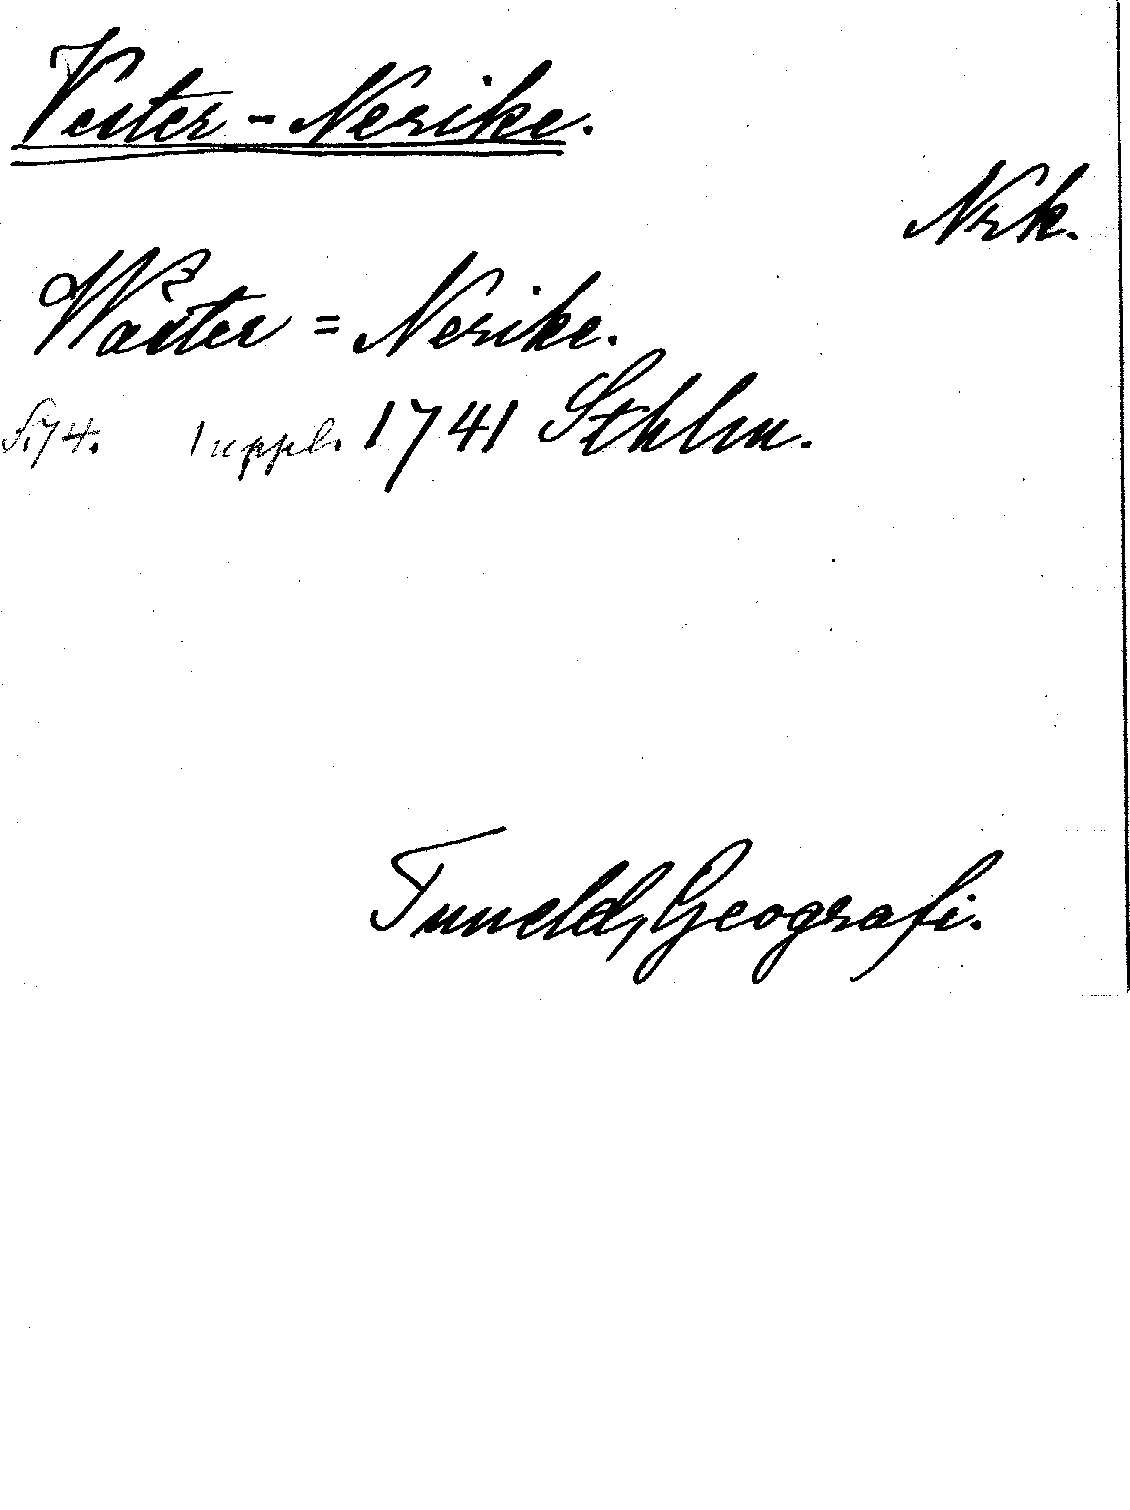 Vester-Nerike.
Nrk.
Wäster=Nerike.
S.74. 1 uppl. 1741 Sthlm.
Tuneld, Geografi.